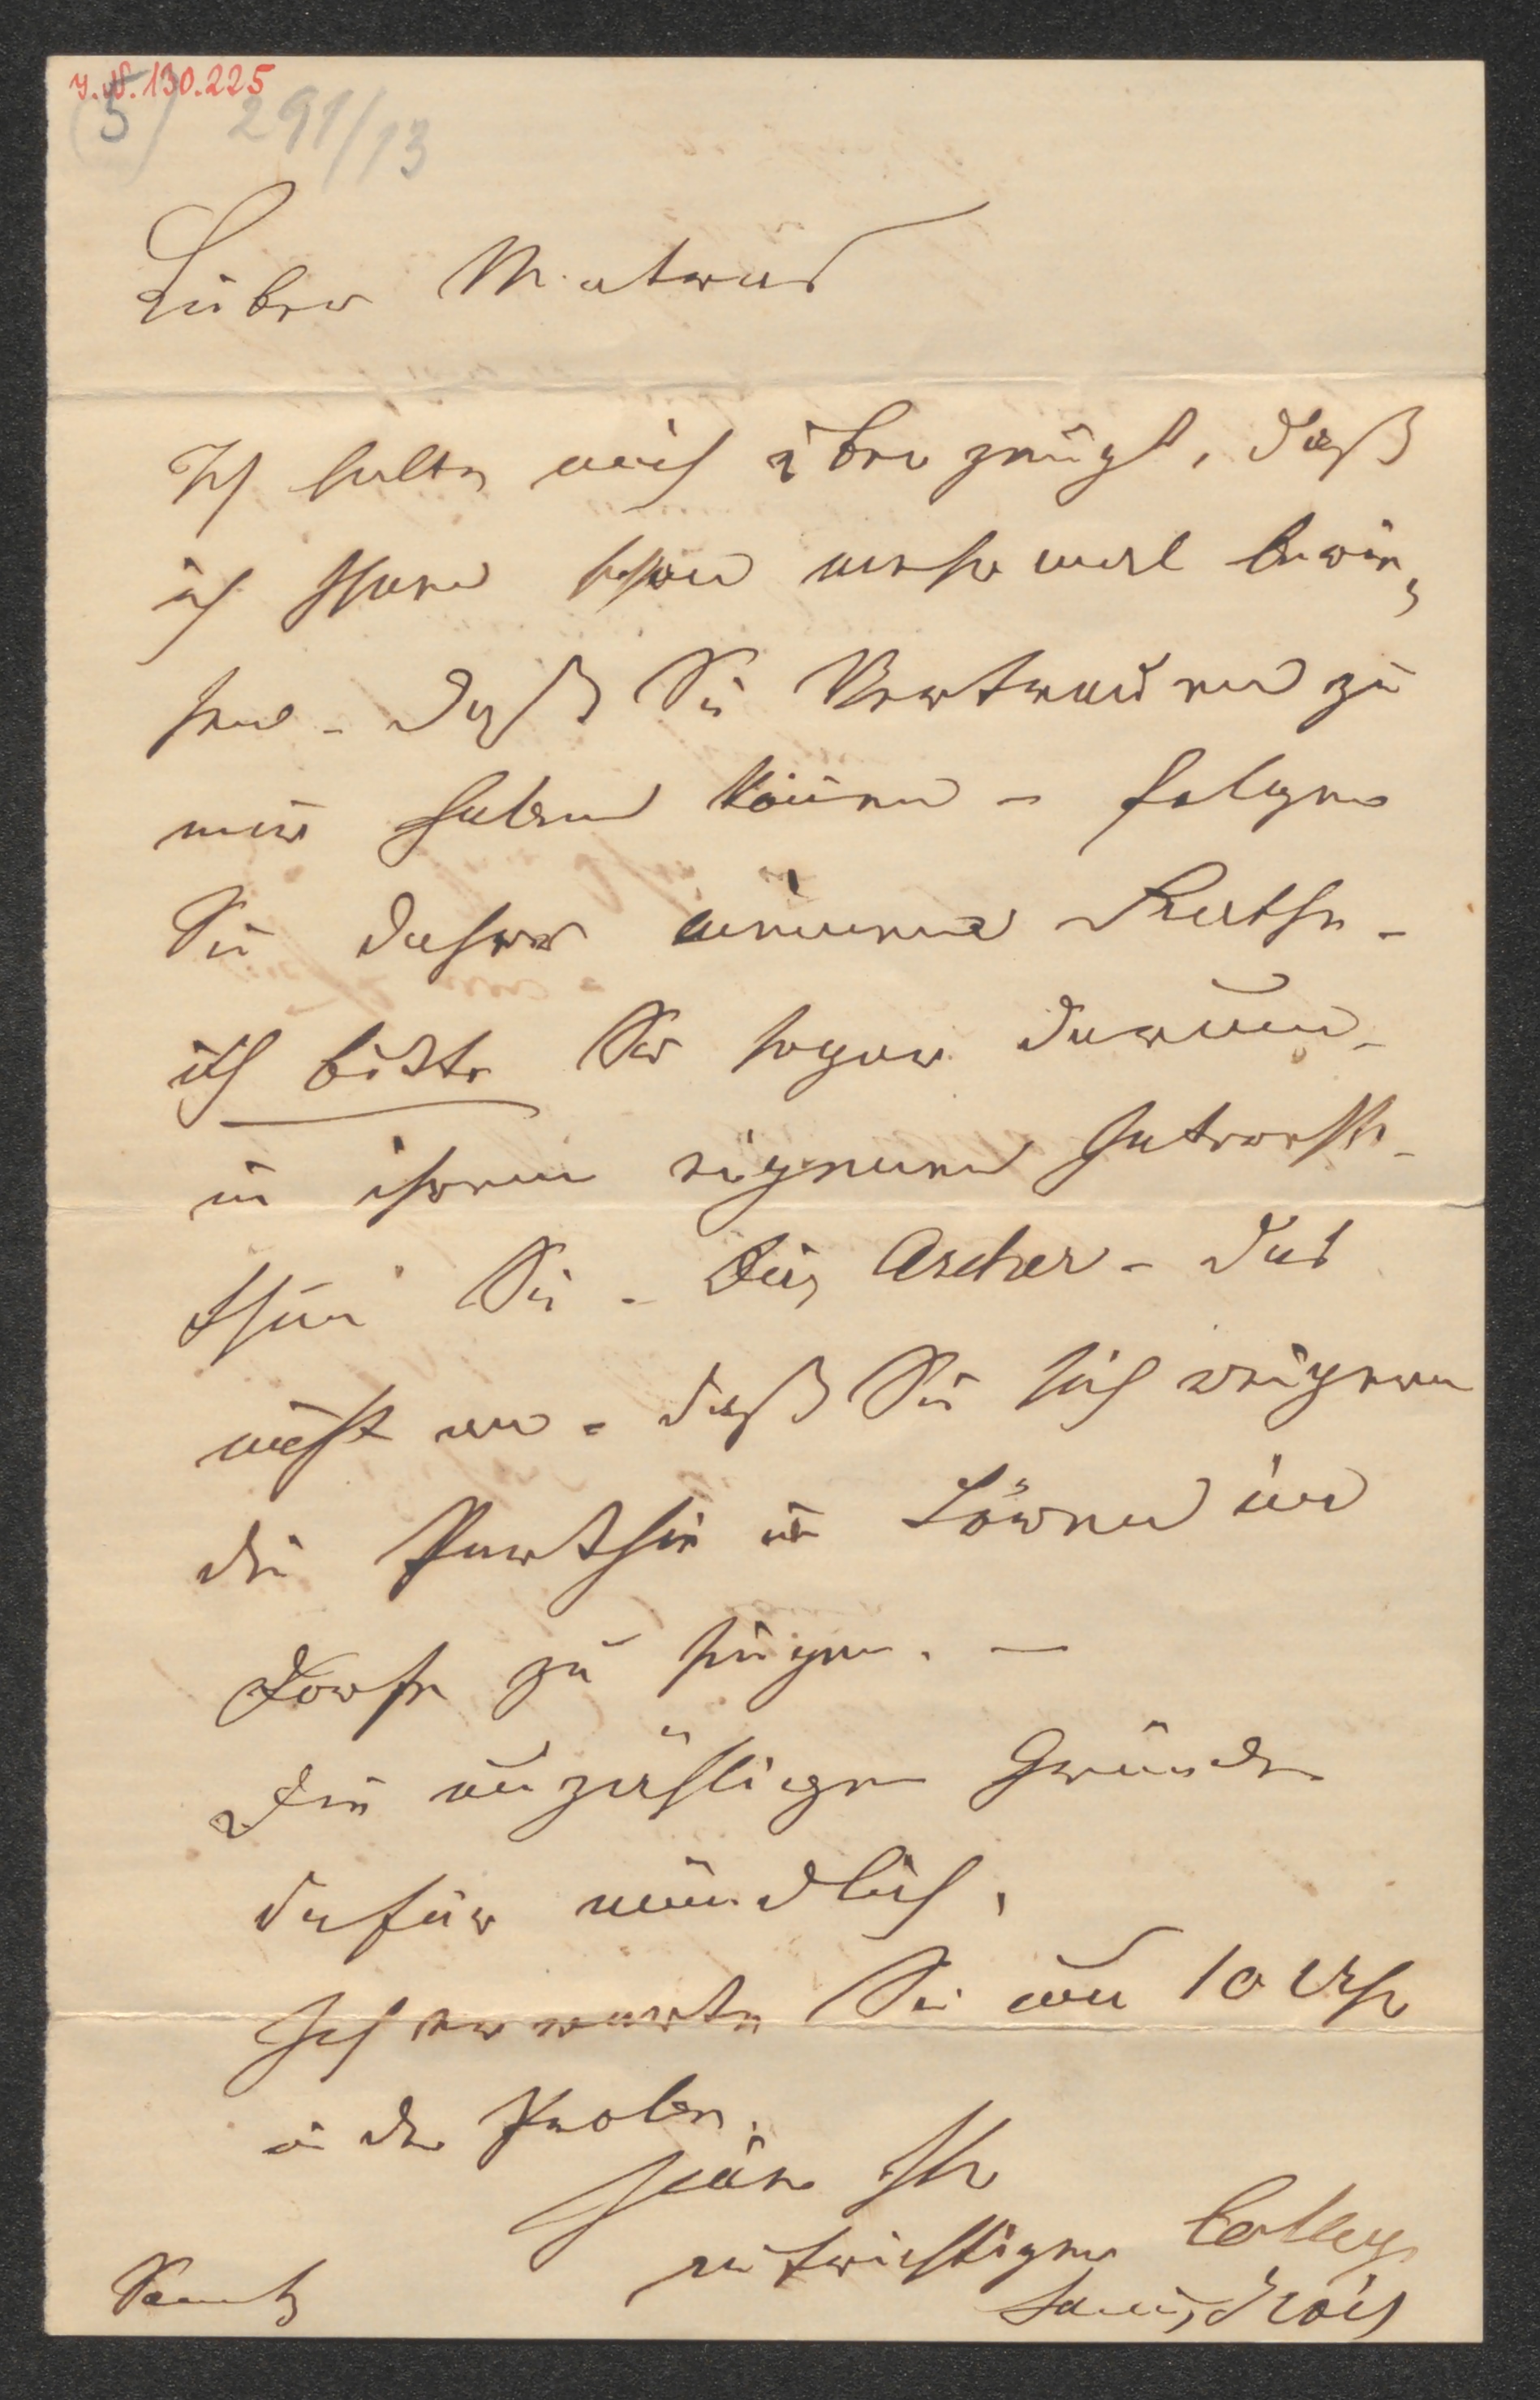 I.N. 130.225
(5) 291/13
Lieber Matras
Ich halte mich überzeugt, daß
ich Ihnen schon mehrmal bewie,
sen - daß Sie Vertrauen zu
mir haben können - folgen
Sie daher meinem Rathe -
ich bitte Sie sogar darum -
in ihrem eigenen Interesse -
thun Sie - Ascher - das
nicht an - daß Sie sich weigern
die Parthie in Löwen im
Dorfe zu singen. —
Die unzähligen Gründe
dafür mündlich.
Ich erwarte Sie um 10 Uhr
in der Probe.
Ihr
aufrichtiger College
Louis Grois